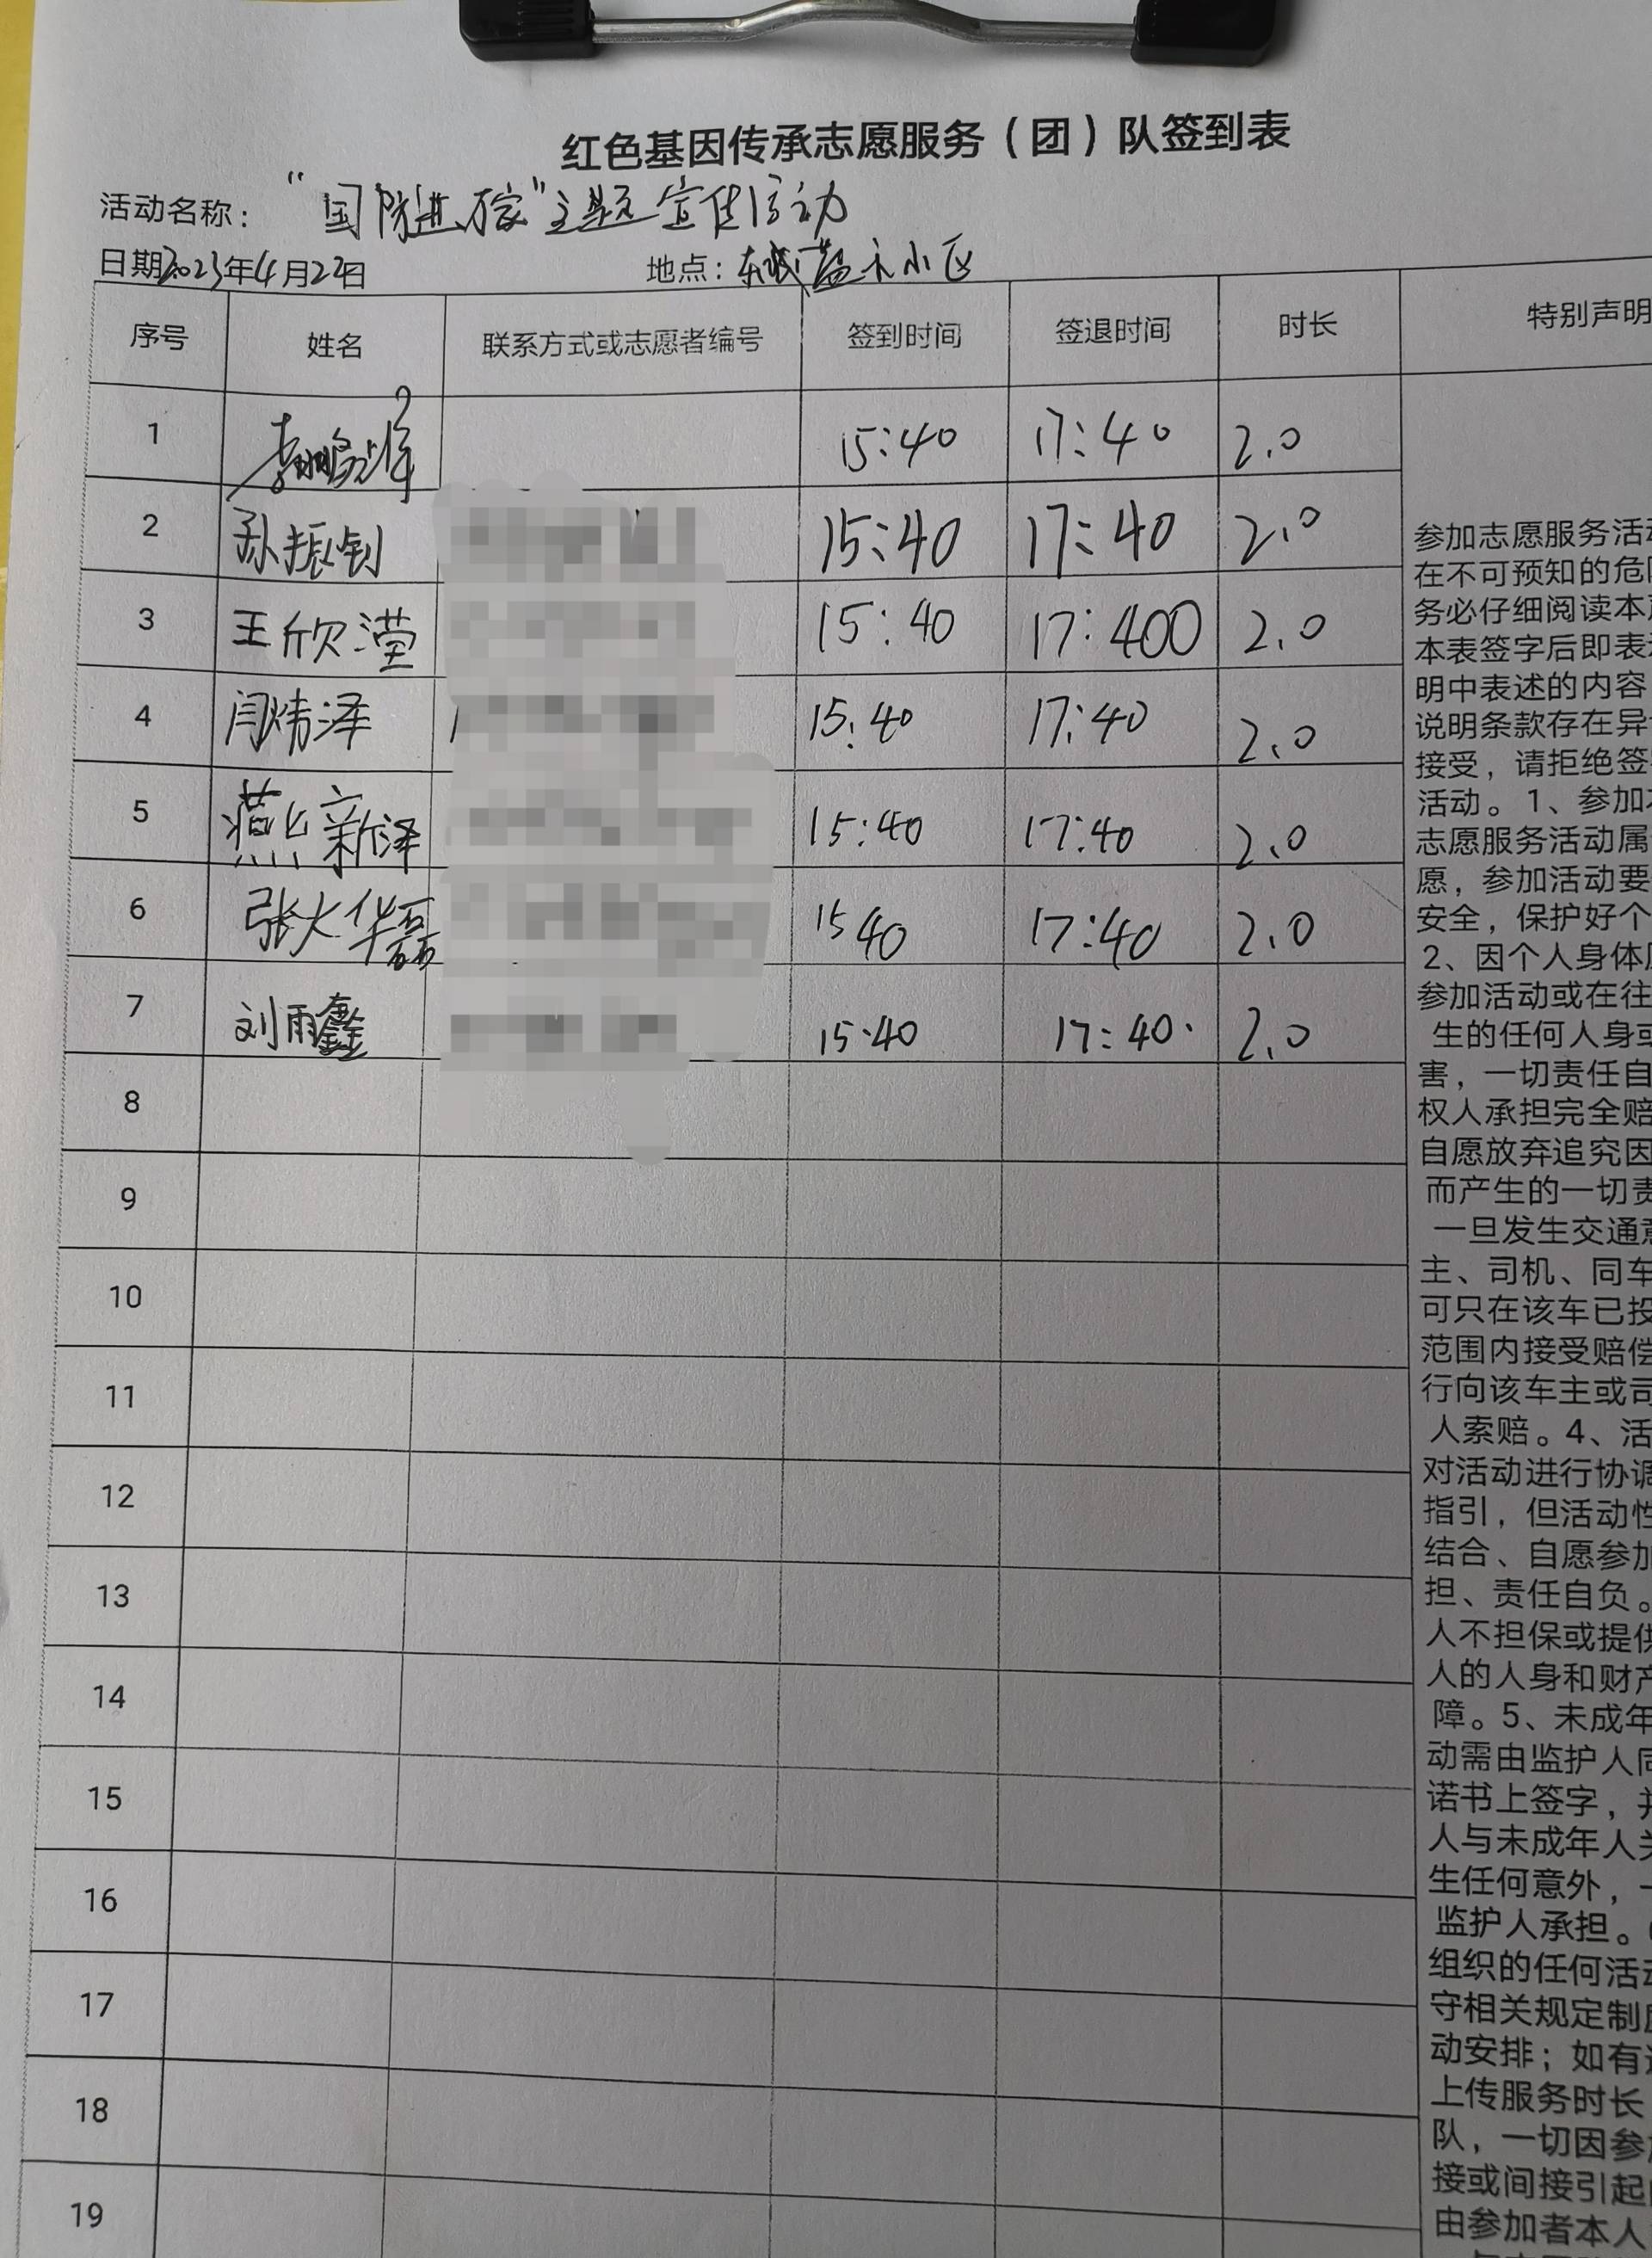 红色基因传承志愿服务（团）队签到表
活动名称： “国防进万家”主题宣传活动
日期2023年4月22日 地点：东城小区
序号 姓名 联系方式或志愿者编号 签到时间 签退时间 时长 特别声明
1 15:40 17:40 2.0
2 孙振钊 15:40 17:40 2.0
3 王欣滢 15:40 17:400 2.0
4 闫炜泽 15:40 17:40 2.0
5 燕新泽 15:40 17:40 2.0
6 张大华磊 15 40 17:40 2.0
7 刘雨鑫 15:40 17:40. 2.0
8
9
10
11
12
13
14
15
16
17
18
19
参加志愿服务活动
在不可预知的危
务必仔细阅读本
本表签字后即表
明中表述的内容
说明条款存在异
接受，请拒绝签
活动。1、参加
志愿服务活动属
愿，参加活动要
安全，保护好个
2、因个人身体
参加活动或在往
生的任何人身或
害，一切责任自
权人承担完全赔
自愿放弃追究因
而产生的一切责
一旦发生交通意
主、司机、同车
可只在该车已投
范围内接受赔偿
行向该车主或司
人索赔。4、活
对活动进行协调
指引，但活动性
结合、自愿参加
担、责任自负。
人不担保或提供
人的人身和财产
障。5、未成年
动需由监护人同
诺书上签字，并
人与未成年人关
生任何意外，一
监护人承担。
组织的任何活动
守相关规定制度
动安排；如有
上传服务时长
队，一切因参加
接或间接引起
由参加者本人